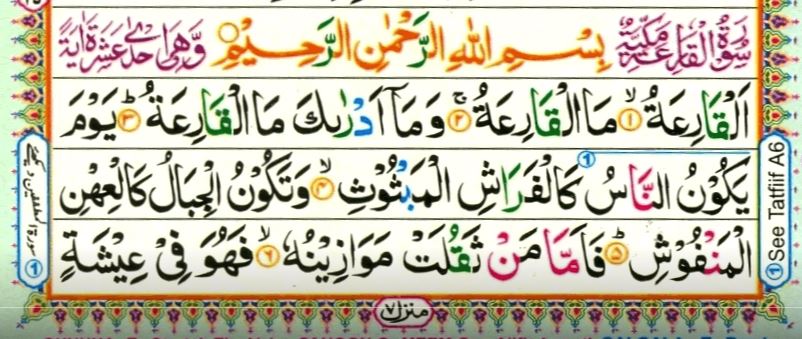 سُوْرَةُ الْقَارِعَةِ مَكِّيَّةٌ بِسْمِ اللّٰهِ الرَّحْمٰنِ الرَّحِيْمِ وَّهِىَ اِحْدٰى عَشَرَةَ اٰيَةً
اَلْقَارِعَةُ ۙ﴿۱﴾ مَا الْقَارِعَةُ ۚ﴿۲﴾ وَمَاۤ اَدْرٰىكَ مَا الْقَارِعَةُ ؕ﴿۳﴾ يَوْمَ
يَكُوْنُ النَّاسُ كَالْفَرَاشِ الْمَبْثُوْثِ ۙ﴿۴﴾ وَتَكُوْنُ الْجِبَالُ كَالْعِهْنِ
الْمَنْفُوْشِ ؕ﴿۵﴾ فَاَمَّا مَنْ ثَقُلَتْ مَوَازِيْنُهٗ ۙ﴿۶﴾ فَهُوَ فِىْ عِيْشَةٍ
منزل ۷
1 See Tatfiif A6